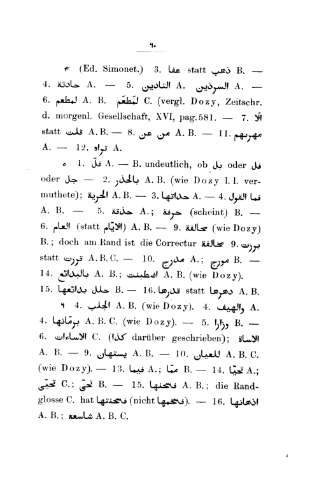 ٦٠
٣ (Ed. Simonet.) 3. عفا statt ذهب B. —
4. حادثة A. — 5. النادين A. السردين A. —
6. لمطعم A. B. لمطعّم C. (vergl. Dozy, Zeitschr.
d. morgenl. Gesellschaft, XVI, pag. 581. — 7. ألّا
statt قلت A. B. — 8. من عن A. B. — 11. مهربهم
A. — 12. تواه A.
٥ 1. قلّ A. — B. undeutlich, ob بل oder فل
oder جل — 2. بالحذر A. B. (wie Dozy I. l. ver-
muthete); الحربة A. B. — 3. حداتها A. — 4. فما القول
A. B. — 5. حذقة A.; حرفة (scheint) B. —
6. العام (statt الايّام) A. B. — 9. مخالفة (wie Dozy)
B.; doch am Rand ist die Correctur مخالفة 9. بررت
statt قررت A. B. C. — 10. مدرج A.; مورج B. —
14. بالبدائع A. B.; اطبنت A. B. (wie Dozy).
15. حلل بدائعها B. — 16. قدرها statt دهرها A. B.
٦ 4. الجلب A. B. (wie Dozy). 4. والهيف A.
4. برمّانها A. B. C. (wie Dozy). — 5. وزارا B. —
6. الاساءات C. (كذا darüber geschrieben); الاساة
A. B. — 9. يستهان A. B. — 10. للعيان A. B. C.
(wie Dozy). — 13. فيما A.; ممّا B. — 14. تحيّا A.;
تحيّى C.; تحيّ B. — 15. فتحتها A. B.; die Rand-
glosse C. hat فتحتها (nicht فتحمها). — 16. اذهانها
A. B.; شاسعة A. B. C.